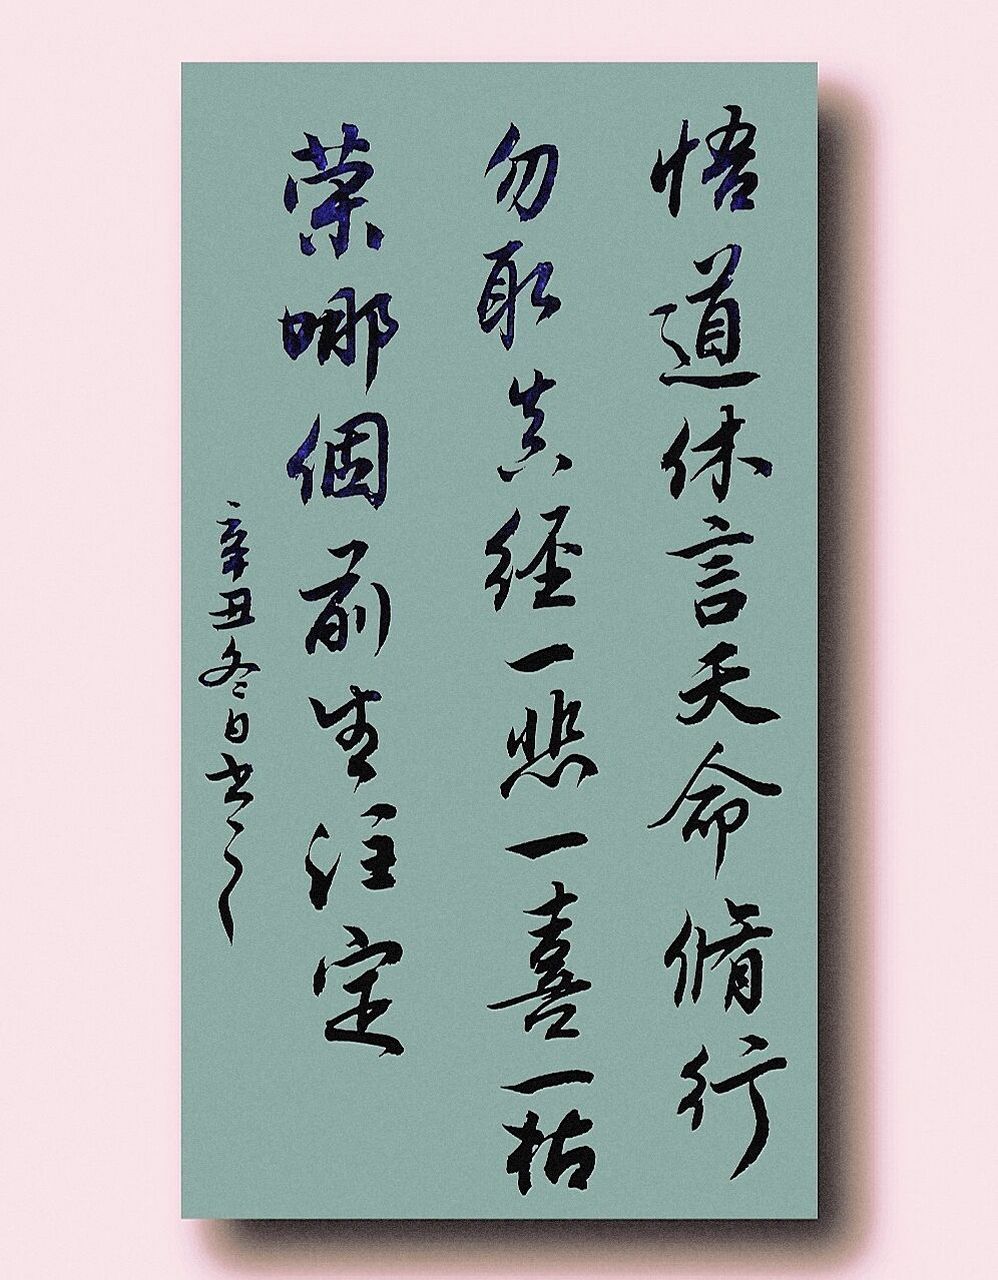 悟道休言天命脩行
勿取真經一悲一喜一枯
荣哪個前生注定
辛丑冬日书之